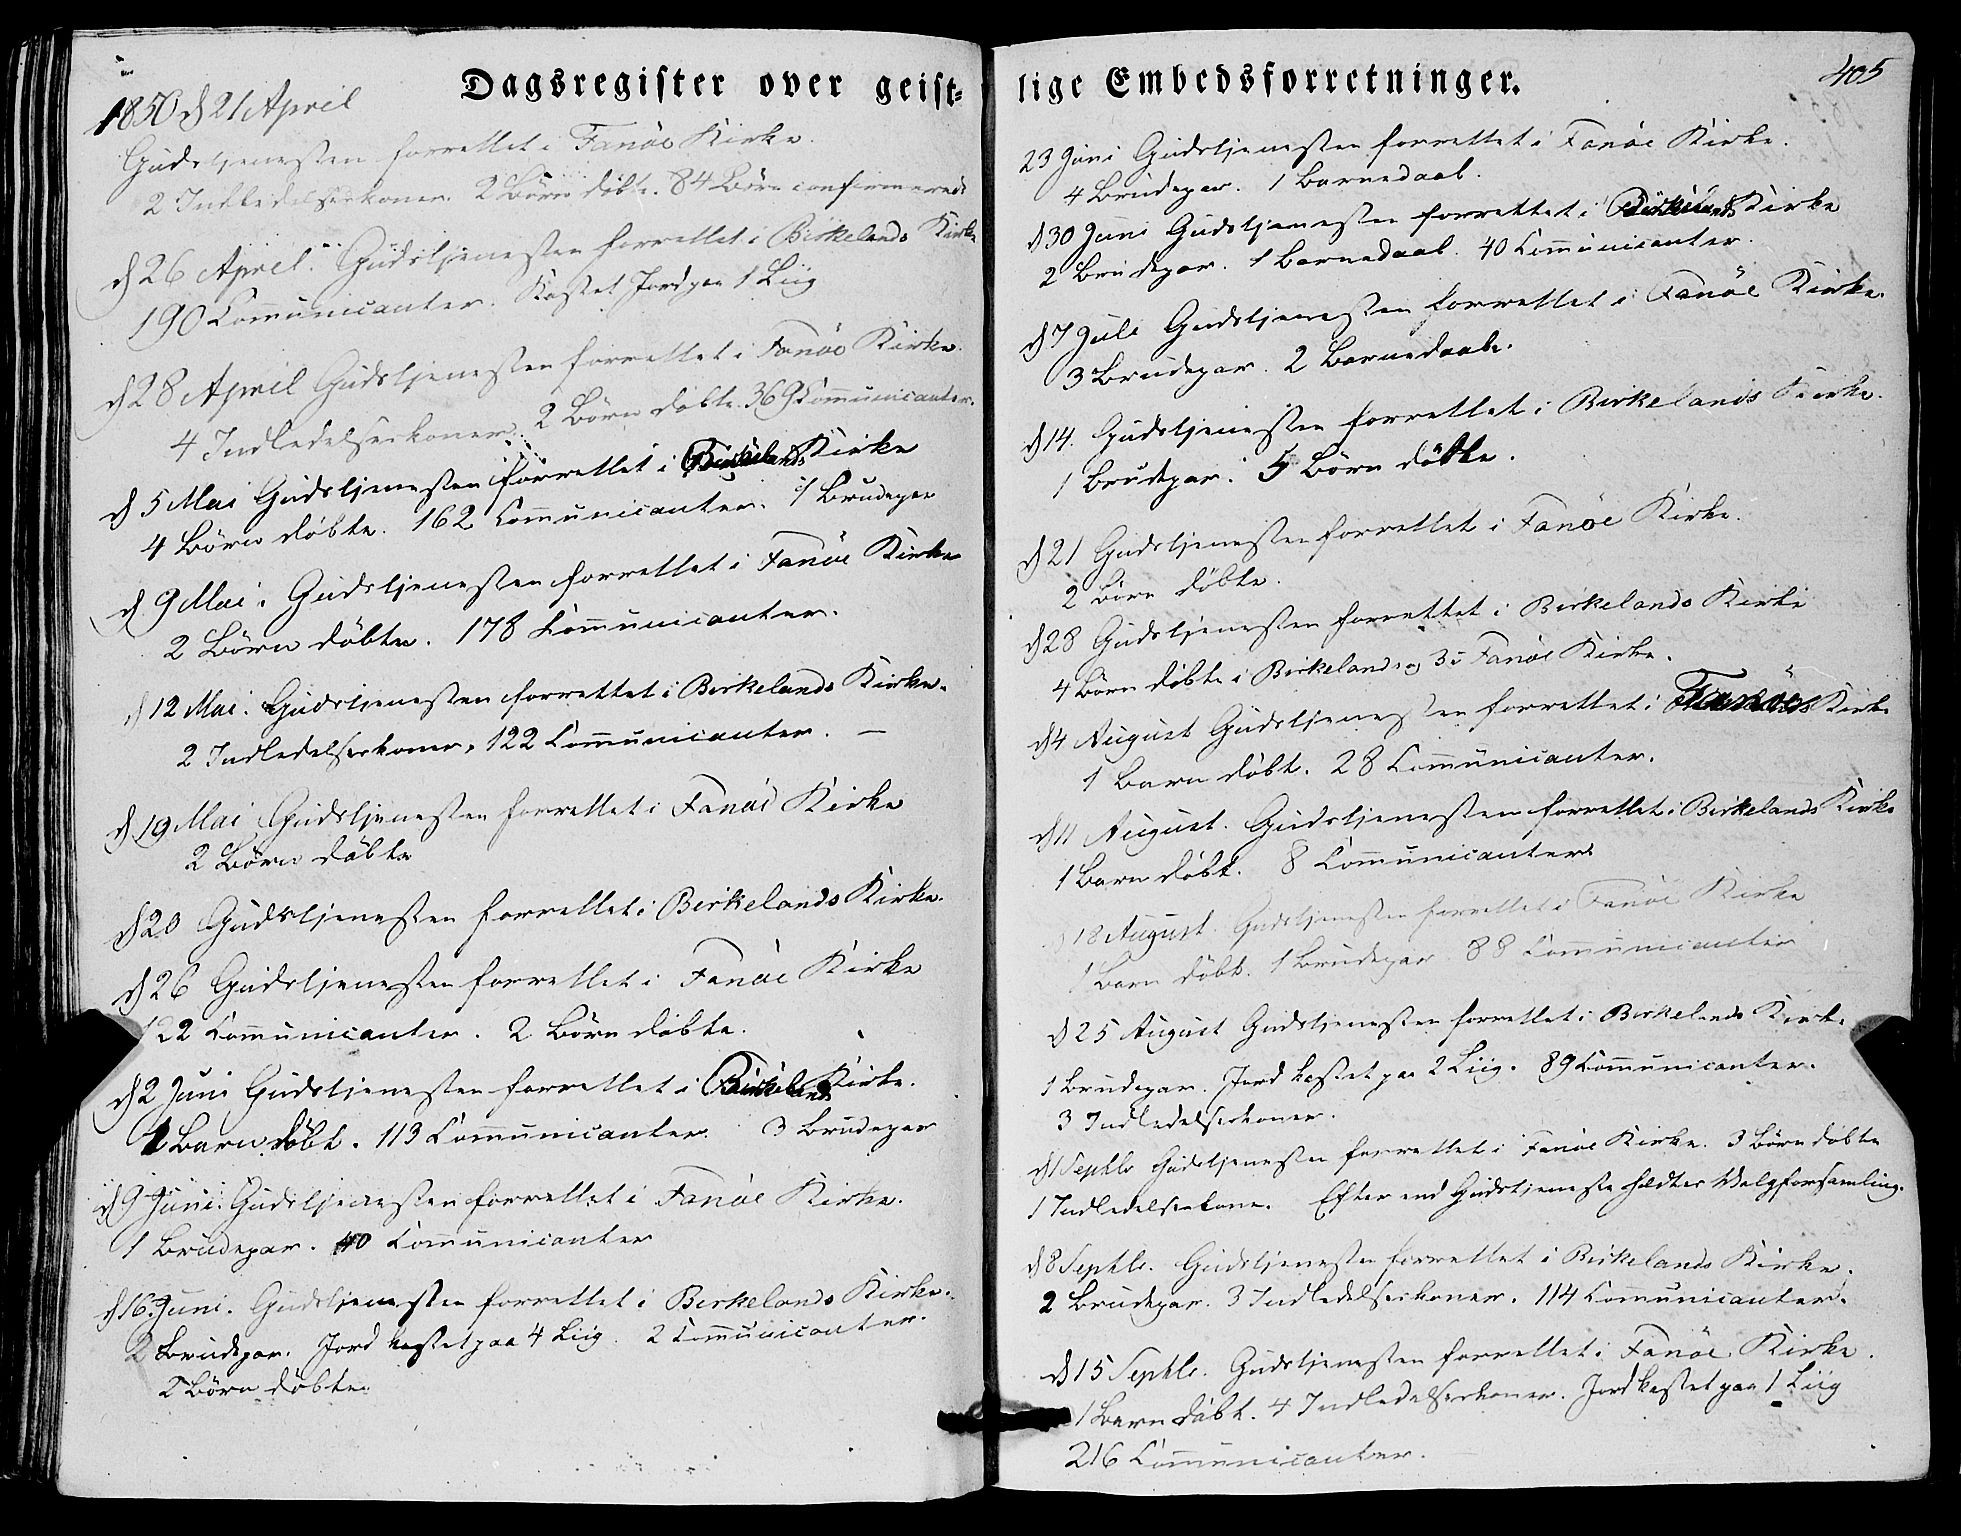 Dagsregister over geist-
1850 d 21 April
Gudstjenesten forrettet i Fanöe Kirke.
2 Indledelseskoner. 2 Börn döbt. 84 Börn confirmerede
d 26 April. Gudstjenesten forrettet i Birkelands Kirke
190 Communicanter. Kastet Jord paa 1 Liig
d 28 April Gudstjenesten forrettet i Fanöe Kirke.
4 Indledelseskoner. 2 Börn döbte. 369 Communicanter.
d 5 Mai Gudstjenesten forrettet i Birkelands Kirke
4 Börn döbte. 162 Communicanter. 1 Brudepar
d. 9 Mai. Gudstjenesten forrettet i Fanöe Kirke
2 Börn döbte. 178 Communicanter.
d 12 Mai. Gudstjenesten forrettet i Birkelands Kirke.
2 Indledelseskoner, 122 Communicanter. —
d. 19 Mai Gudstjenesten forrettet i Fanöe Kirke
2 Börn döbte
d 20 Gudstjenesten forrettet i Birkelands Kirke.
d 26 Gudstjenesten forrettet i Fanöe Kirke
122 Communicanter. 2 Börn döbte.
d 2 Juni Gudstjenesten forrettet i Birkeland Kirke.
1 Barn döbt. 113 Communicanter. 3 Brudepar
d 9 Juni. Gudstjenesten forrettet i Fanöe Kirke.
1 Brudepar. 40 Communicanter
d 16. Juni. Gudstjenesten forrettet i Birkelands Kirke.
2 Brudepar. Jord kastet paa 4 Liig. 2 Communicanter.
2 Börn döbte.
lige Embedsforretninger.
405
23 Juni Gudstjenesten forrettet i Fanöe Kirke.
4 Brudepar. 1 Barnedaab.
d 30 Juni Gudstjenesten forrettet i Birkelands Kirke
2 Brudepar. 1 Barnedaab. 40 Communicanter.
d 7 Juli Gudstjenesten forrettet i Fanöe Kirke.
3 Brudepar. 2 Barnedaabe.
d 14. Gudstjenesten forrettet i Birkelands Kirke.
1 Brudepar. 5 Börn döbte.
d 21 Gudstjenesten forrettet i Fanöe Kirke.
2 Börn döbte.
d 28 Gudstjenesten forrettet i Birkelands Kirke
4 Börn döbte i Birkelands og 3 i Fanöe Kirke.
d 4 August Gudstjenesten forrettet i Fanöe Kirke
1 Barn döbt. 28 Communicanter.
d 11 August. Gudstjenesten forrettet i Birkelands Kirke
1 Barn döbt. 8 Communicanter
d 18 August. Gudstjenesten forrettet i Fanöe Kirke
1 Barn döbt. 1 Brudepar 88 Communicanter
d 25 August Gudstjenesten forrettet i Birkelands Kirke.
1 Brudepar. Jord kastet paa 2 Liig. 89 Communicanter.
3 Indledelseskoner.
d 1 Septbr Gudstjenesten forrettet i Fanöe Kirke. 3 Börn döbte
1 Indledelseskone. Efter end Gudstjeneste holdtes Valgforsamling.
d 8 Septbr. Gudstjenesten forrettet i Birkelands Kirke.
2 Brudepar. 3 Indledelseskoner. 114 Communicanter.
d 15 Septbr. Gudstjenesten forrettet i Fanöe Kirke.
1 Barn döbt. 4 Indledelseskoner. Jord kastet paa 1 Liig
216 Communicanter.